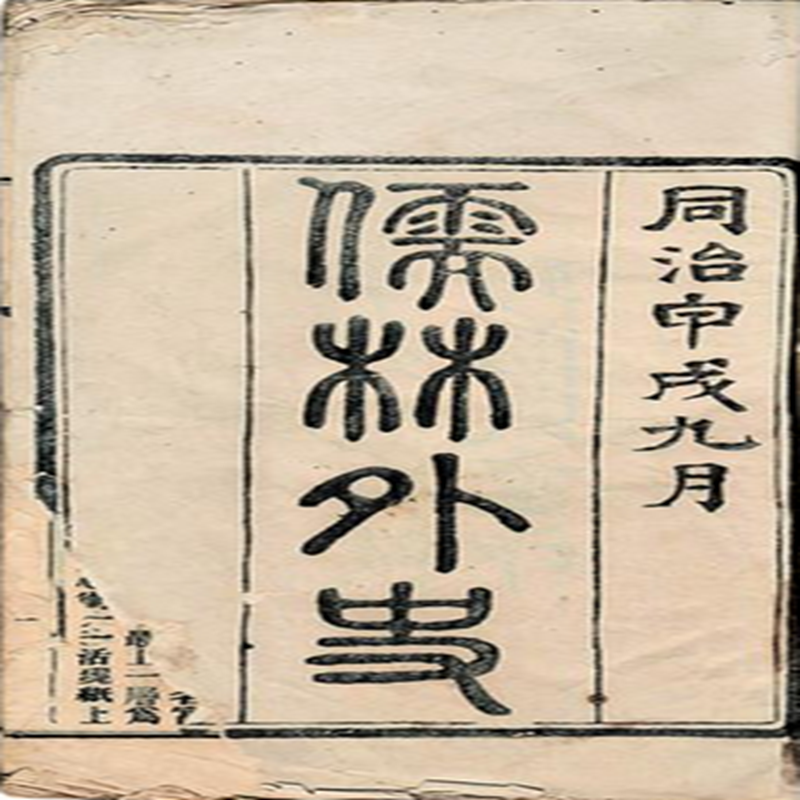 同治甲戌九月
儒林外史
活
上